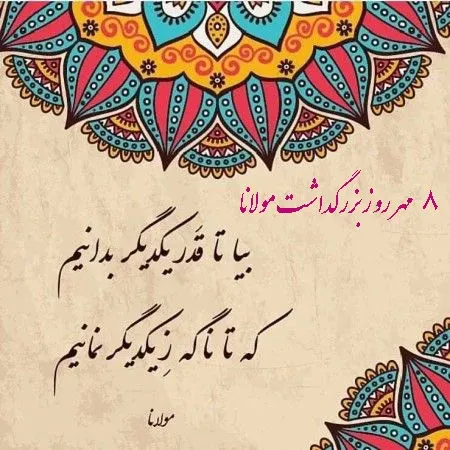 ۸ مهر روز بزرگداشت مولانا
بیا تا قَدر یکدیگر بدانیم
که تا ناگه زِ یکدیگر نمانیم
مولانا